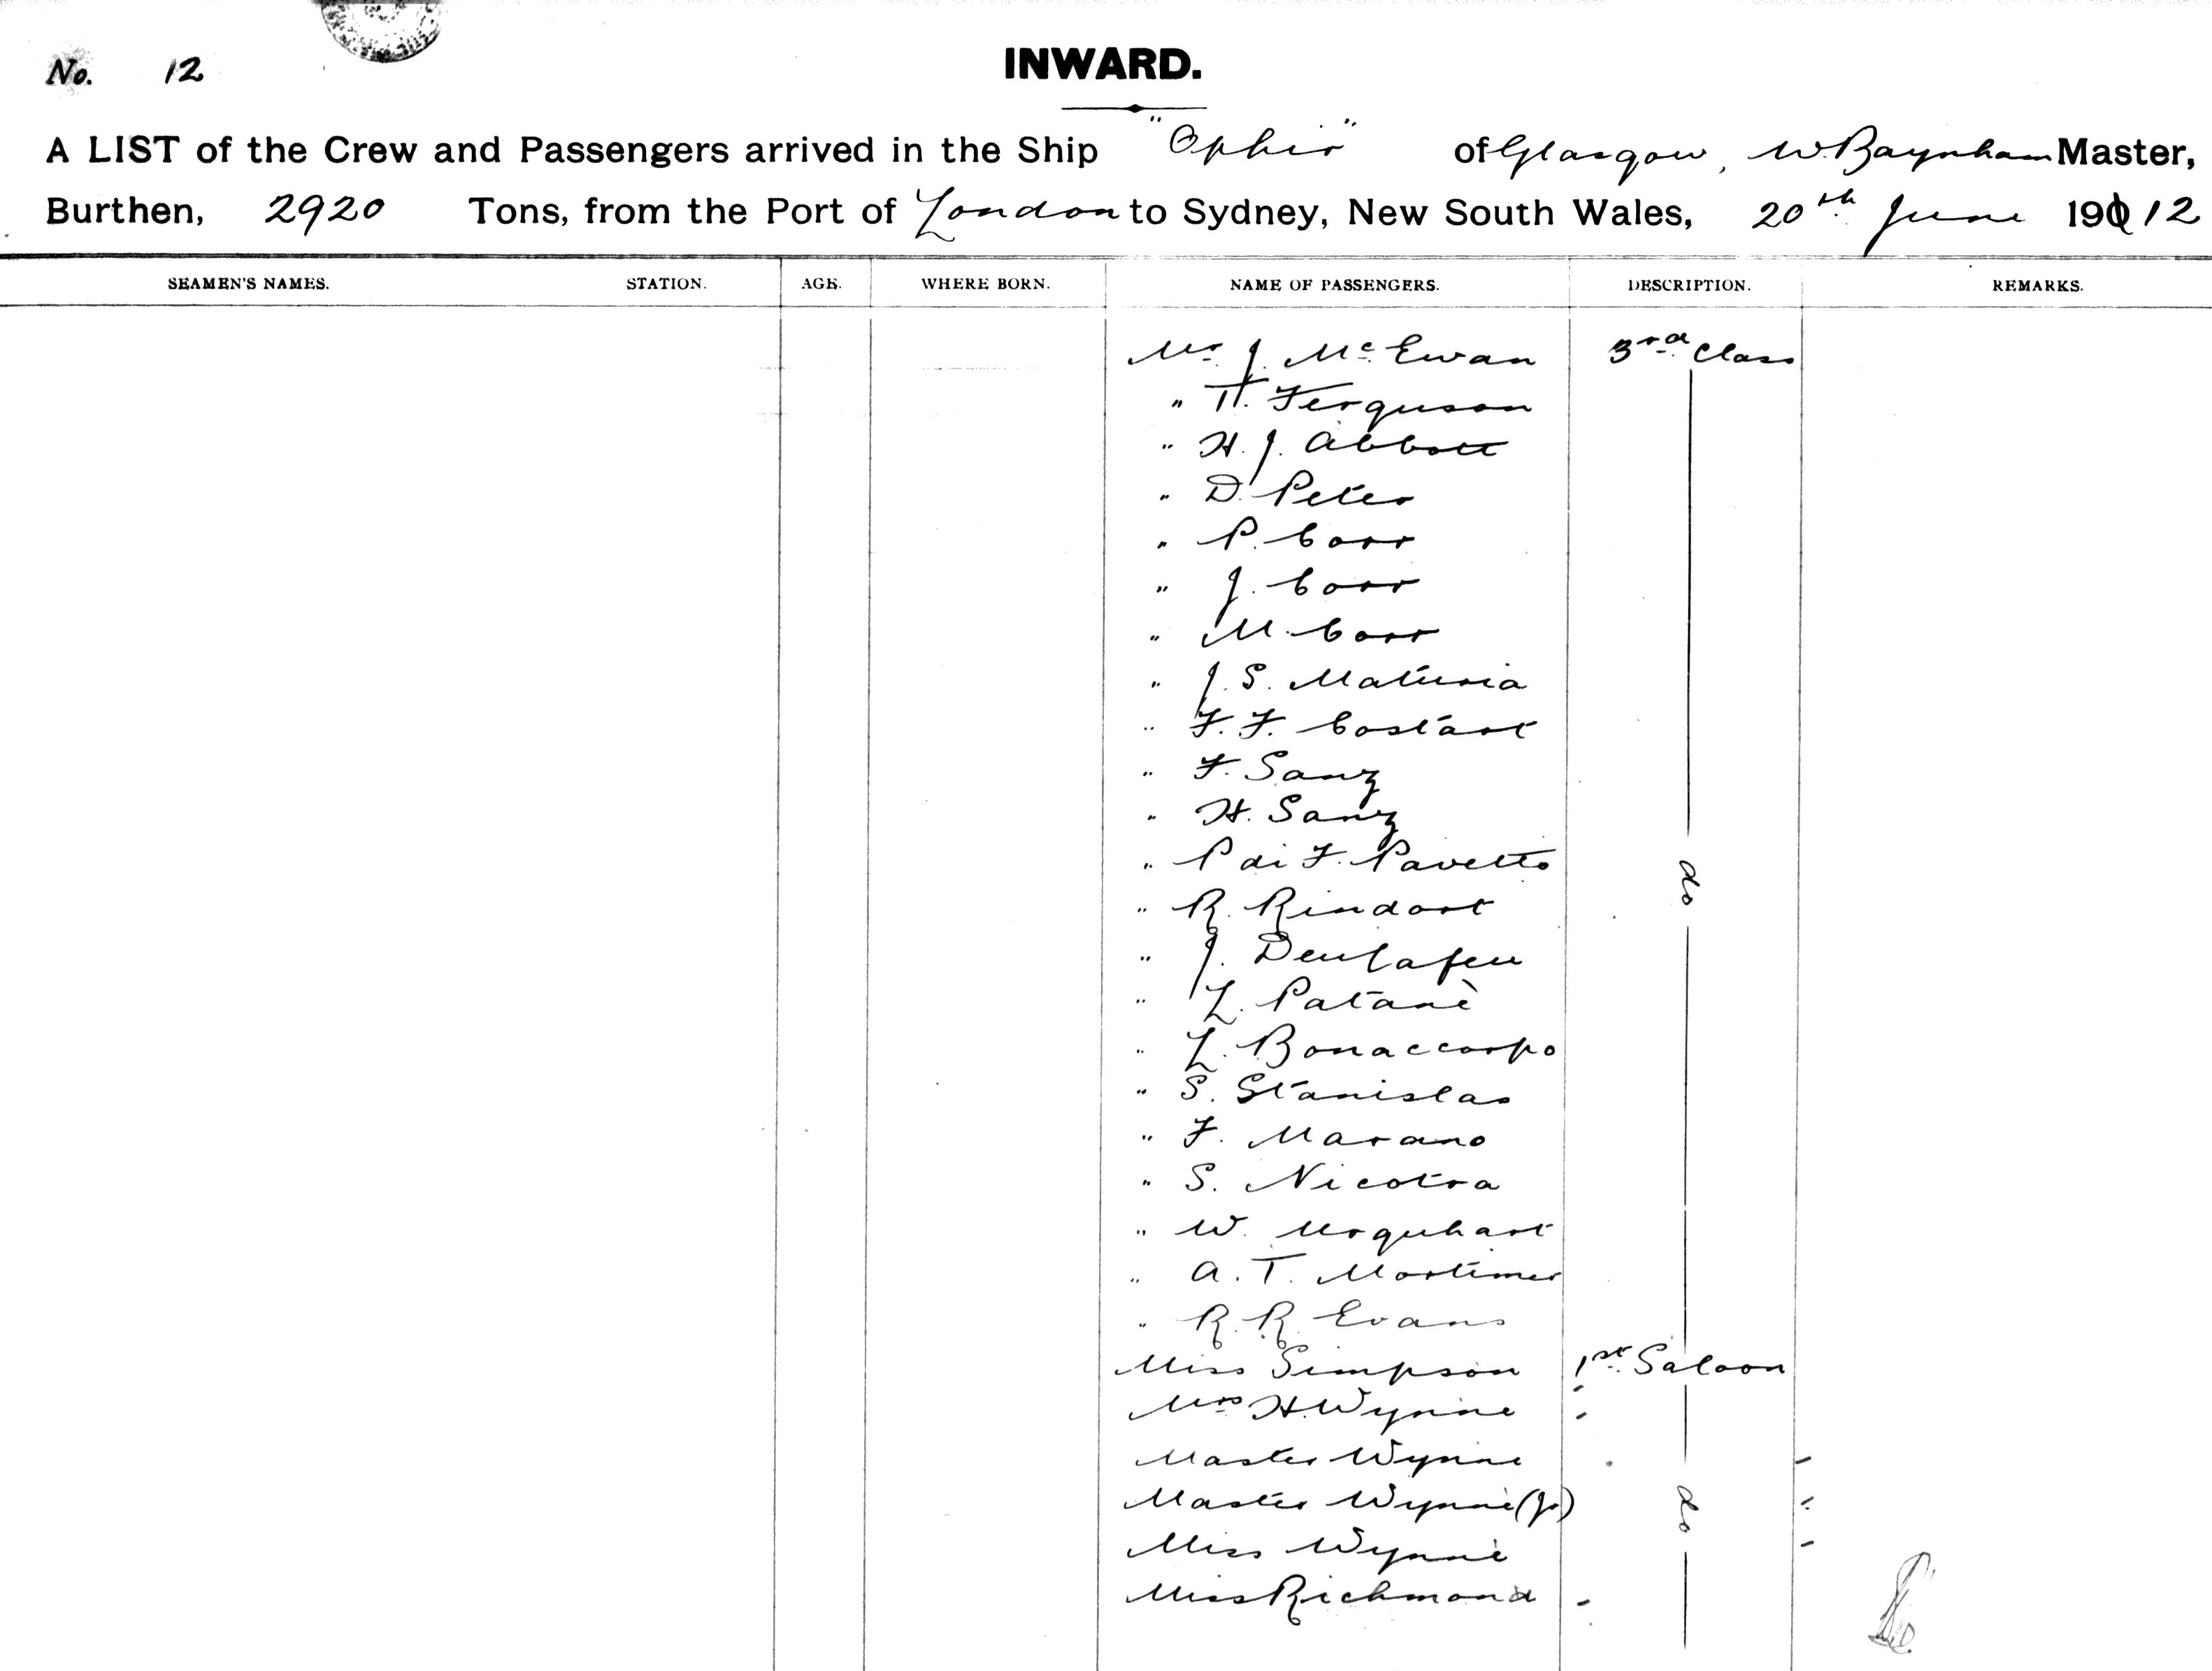 No. 12
INWARD.
A LIST of the Crew and Passengers arrived in the Ship "Ophir" of Glasgow, W. Baynham Master,
Burthen, 2920 Tons, from the Port of London to Sydney, New South Wales, 20th June 1912
SEAMEN'S NAMES. STATION. AGE. WHERE BORN. NAME OF PASSENGERS. DESCRIPTION. REMARKS.
Mr J. McEwan 3rd Class
" H. Ferguson
" H. J. Abbott
" D. Peter
" P. Corr
" J. Corr
" M. Corr
" J. S. Maturia
" F. F. Costart
" F. Sanz
" H. Sanz
" P di F. Pavetto do
" R. Rindort
" J. Deulafeu
" L. Patanè
" L. Bonaccorpo
" S. Stanislas
" F. Marano
" S. Nicotra
" W. Urquhart
" A. T. Mortimer
" R. R. Evans
Miss Simpson 1st Saloon
Mrs H. Wynne "
Master Wynne "
Master Wynne (Jr) do "
Miss Wynne "
Miss Richmond "